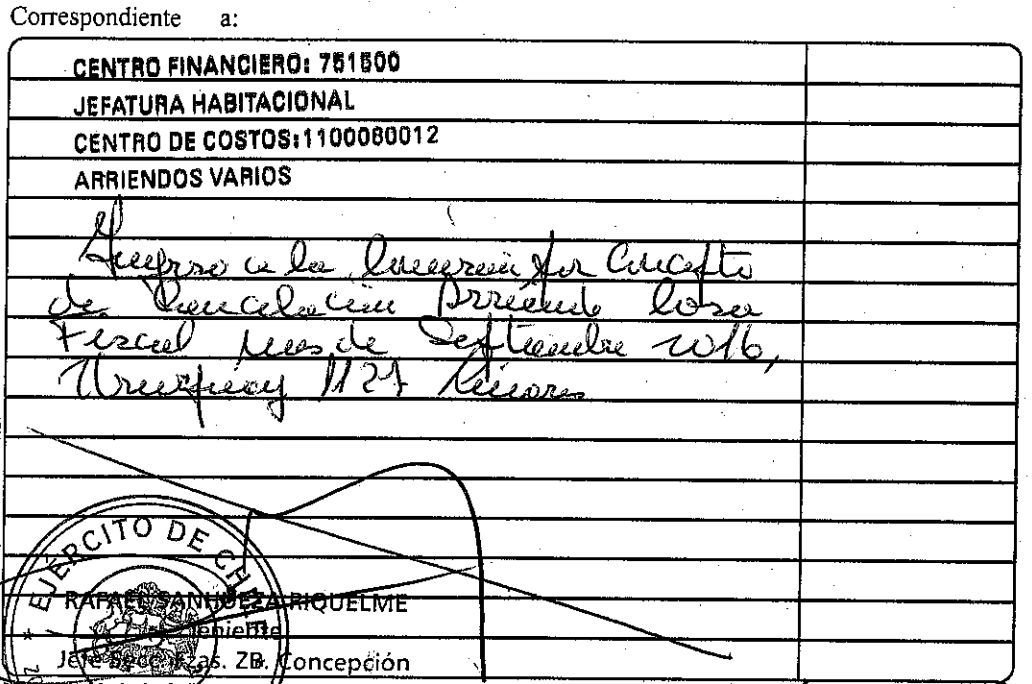 Correspondiente a:
CENTRO FINANCIERO: 751500
JEFATURA HABITACIONAL
CENTRO DE COSTOS:1100060012
ARRIENDOS VARIOS
Ingreso a la por Concepto
de Cancelación Arriendo Casa
Fiscal mes de Septiembre 2016,
Uruguay 1127 Linares
EJÉRCITO DE CHILE
RAFAEL SANHUEZA RIQUELME
Jefe Zas. ZB. Concepción